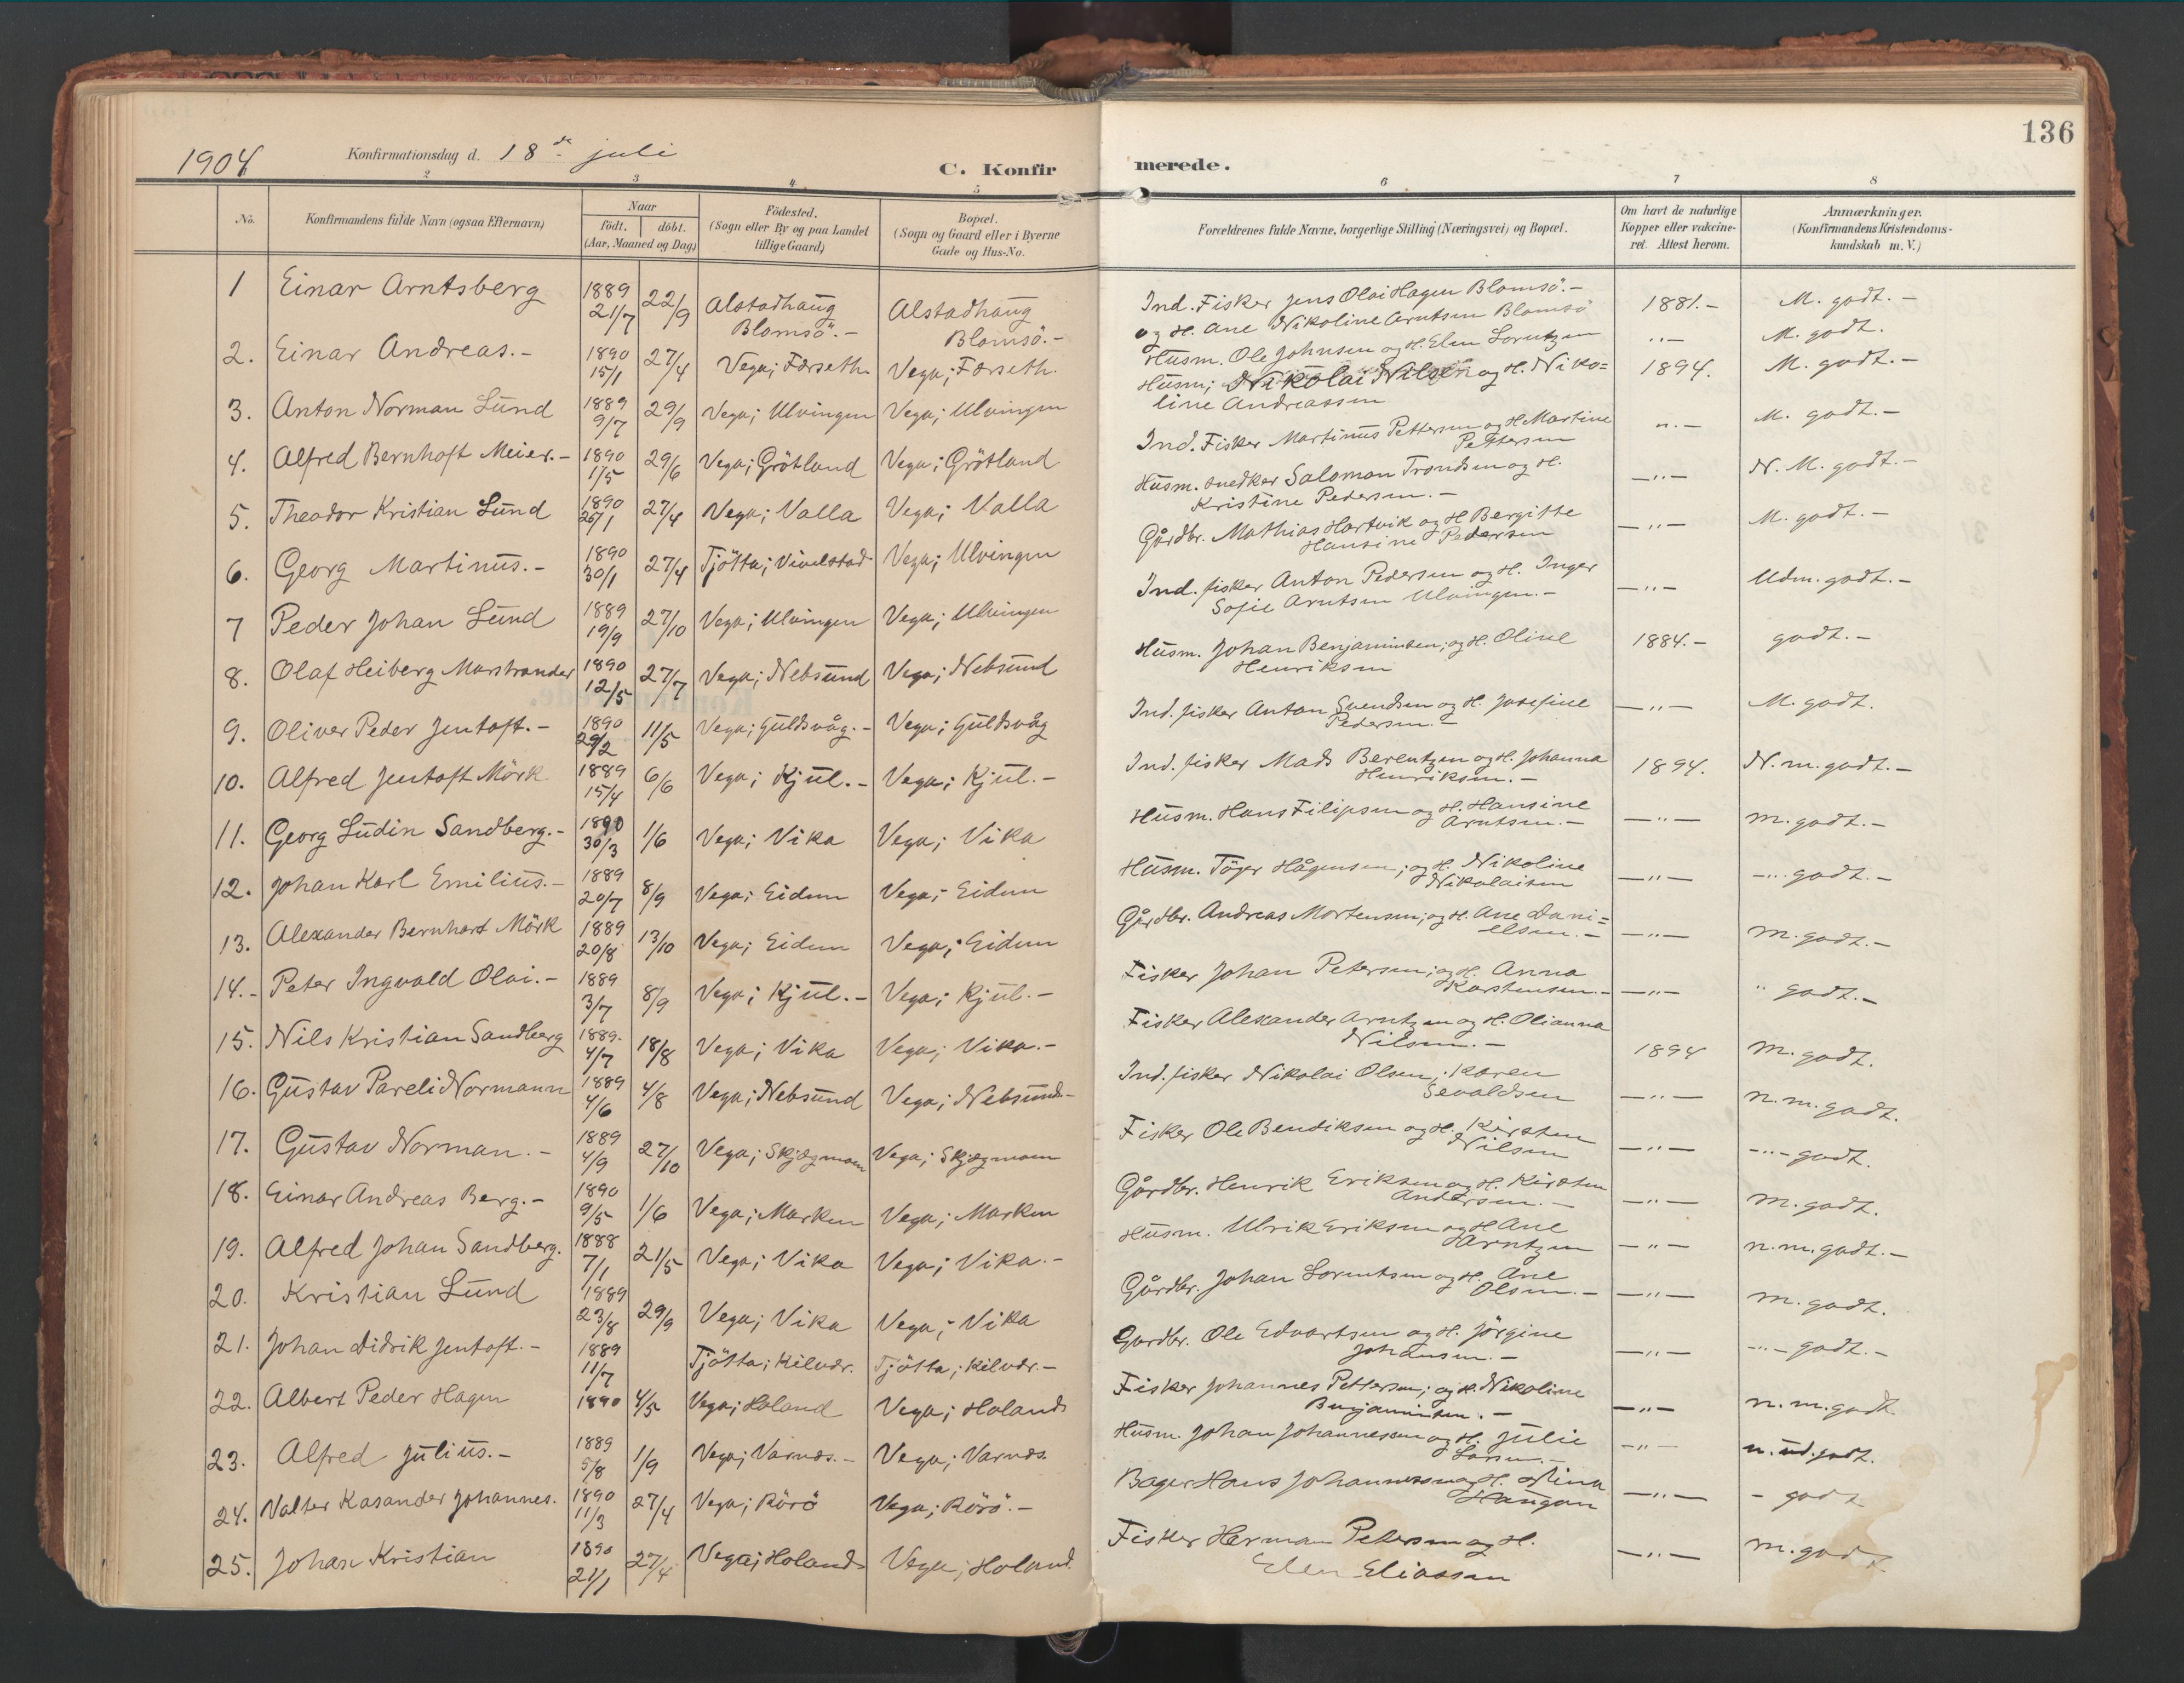 136
1904 Konfirmationsdag d. 18de juli
C. Konfirmerede.
2 3 4 5 6 7 8
No. Konfirmandens fulde Navn (ogsaa Efternavn) Naar födt. döbt. (Aar, Maaned og Dag) Födested. (Sogn eller By og paa Landet tillige Gaard) Bopæl. (Sogn og Gaard eller i Byerne Gade og Hus-No. Forældrenes fulde Navne, borgerlige Stilling (Næringsvei) og Bopæl. Om havt de naturlige Kopper eller vakcineret. Attest herom. Anmærkninger. (Konfirmandens Kristendomskundskab m. V.)
1 Einar Arntsberg 1889 21/7 22/9 Alstadhaug Blomsö.- Alstadhaug Blomsö.- Ind. Fisker Jens Olai Hagen Blomsö.- og H. Ane Nikoline Arntsen Blomsö 1881.- M. godt.-
2. Einar Andreas.- 1890 15/1 27/4 Vega; Færseth. Vega; Færseth. Husm. Ole Johnsen og H. Elen Lorntzen "- M. godt.
3. Anton Norman Lund 1889 9/7 29/9 Vega; Ulvingen Vega; Ulvingen Husm; Nikolai Nilsen og H. Nikoline Andreassen 1894. M. godt.-
4. Alfred Bernhoft Meier.- 1890 1/5 29/6 Vega; Grötland Vega; Grötland Ind. Fisker Martinus Pettersen og H Martine Pettersen ".- M. godt.-
5. Theodor Kristian Lund 1890 26/1 27/4 Vega; Valla Vega; Valla Husm. snedker Saloman Trondsen og H. Kristine Pedersen.- -"- N. M. godt.-
6. Georg Martinus.- 1890 30/1 27/4 Tjötta; Vivelstad Vega; Ulvingen Gårdbr. Mathias Hartvik og H Bergitte Hansine Pedersen -"- M. godt.-
7 Peder Johan Lund 1889 19/9 27/10 Vega; Ulvingen Vega; Ulvingen Ind. fisker Anton Pedersen og H. Inger Sofie Arntsen Ulvingen.- -"- Udm. godt.-
8. Olaf Heiberg Marstrander 1890 12/5 27/7 Vega; Nebsund Vega; Nebsund Husm. Johan Benjaminsen; og H. Oline Henriksen 1884.- godt.-
9. Oliver Peder Jentoft.- 1890 29/2 11/5 Vega; Guldsvåg.- Vega; Guldsvåg Ind. fisker Anton Svendsen og H. Josefine Pedersen.- -"- M. godt.
10. Alfred Jentoft Mörk 1889 15/4 6/6 Vega; Kjul.- Vega; Kjul.- Ind. fisker Mads Berentzen og H. Johanna Henriksen.- 1894. N. m. godt.-
11. Georg Ludin Sandberg.- 1890 30/3 1/6 Vega; Vika Vega; Vika Husm. Hans Filipsen og H. Hansine Arntsen.- -"- m. godt.-
12. Johan Karl Emilius.- 1889 20/7 8/9 Vega; Eidum Vega; Eidum Husm. Töger Hågensen; og H. Nikoline Nikolaisen -"- -"- godt.-
13. Alexander Bernhard Mörk 1889 20/8 13/10 Vega; Eidum Vega; Eidum Gårdbr. Andreas Mortensen; og H. Ane Danielsen.- -"- m. godt.-
14.- Peter Ingvald Olai.- 1889 3/7 8/9 Vega; Kjul.- Vega; Kjul.- Fisker Johan Petersen; og H. Anna Karstensen.- -"- " godt.-
15. Nils Kristian Sandberg 1889. 4/7 18/8 Vega; Vika Vega; Vika.- Fisker Alexander Arntzen og H. Olianna Nilsen.- 1894 m. godt.
16. Gustav Pareli Normann 1889 4/6 4/8 Vega; Nebsund Vega; Nebsund.- Ind. fisker Nikolai Olsen; Karen Sevaldsen -"- n. m. godt.
17. Gustav Norman.- 1889 4/9 27/10 Vega; Skjægmoen Vega; Skjægmoen Fisker Ole Bendiksen og H. Kirsten Nilsen -"- -"- godt.
18. Einar Andreas Berg.- 1890 9/5 1/6 Vega; Marken Vega; Marken Gårdbr. Henrik Eriksen og H. Kirsten Andersen.- -"- m. godt.
19. Alfred Johan Sandberg. 1888 7/1 21/5 Vega; Vika Vega; Vika.- Husm. Ulrik Eriksen og H Ane Arntzen -"- n. m. godt.-
20. Kristian Lund 1889 23/8 29/9 Vega; Vika Vega; Vika Gårdbr. Johan Lorntsen og H. Ane Olsen.- -"- m. godt.
21. Johan Didrik Jentoft.- 1889 11/7 Tjötta; Kilvær. Tjötta; Kilvær.- Gardbr. Ole Edvartsen og H. Jörgine Johansen.- -"- -"- godt.-
22. Albert Peder Hagen 1890 4/5 Vega; Holand Vega; Holand Fisker Johannes Pettersen; og H. Nikoline Benjaminsen.- -"- n. m. godt
23. Alfred Julius.- 1889 5/8 1/9 Vega; Varnæs.- Vega; Varnæs. Husm. Johan Johannessen og H. Julie Larsen.- -"- n. ud. godt.
24. Valter Kasander Johannes. 1890 11/3 27/4 Vega; Rörö Vega; Rörö.- Bager Hans Johannessen og H. Nina Haugan -"- - godt
25. Johan Kristian 1890 21/1 27/4 Vega; Holand Vega; Holand. Fisker Herman Petersen og H. Elen Eliassen -"- m. godt